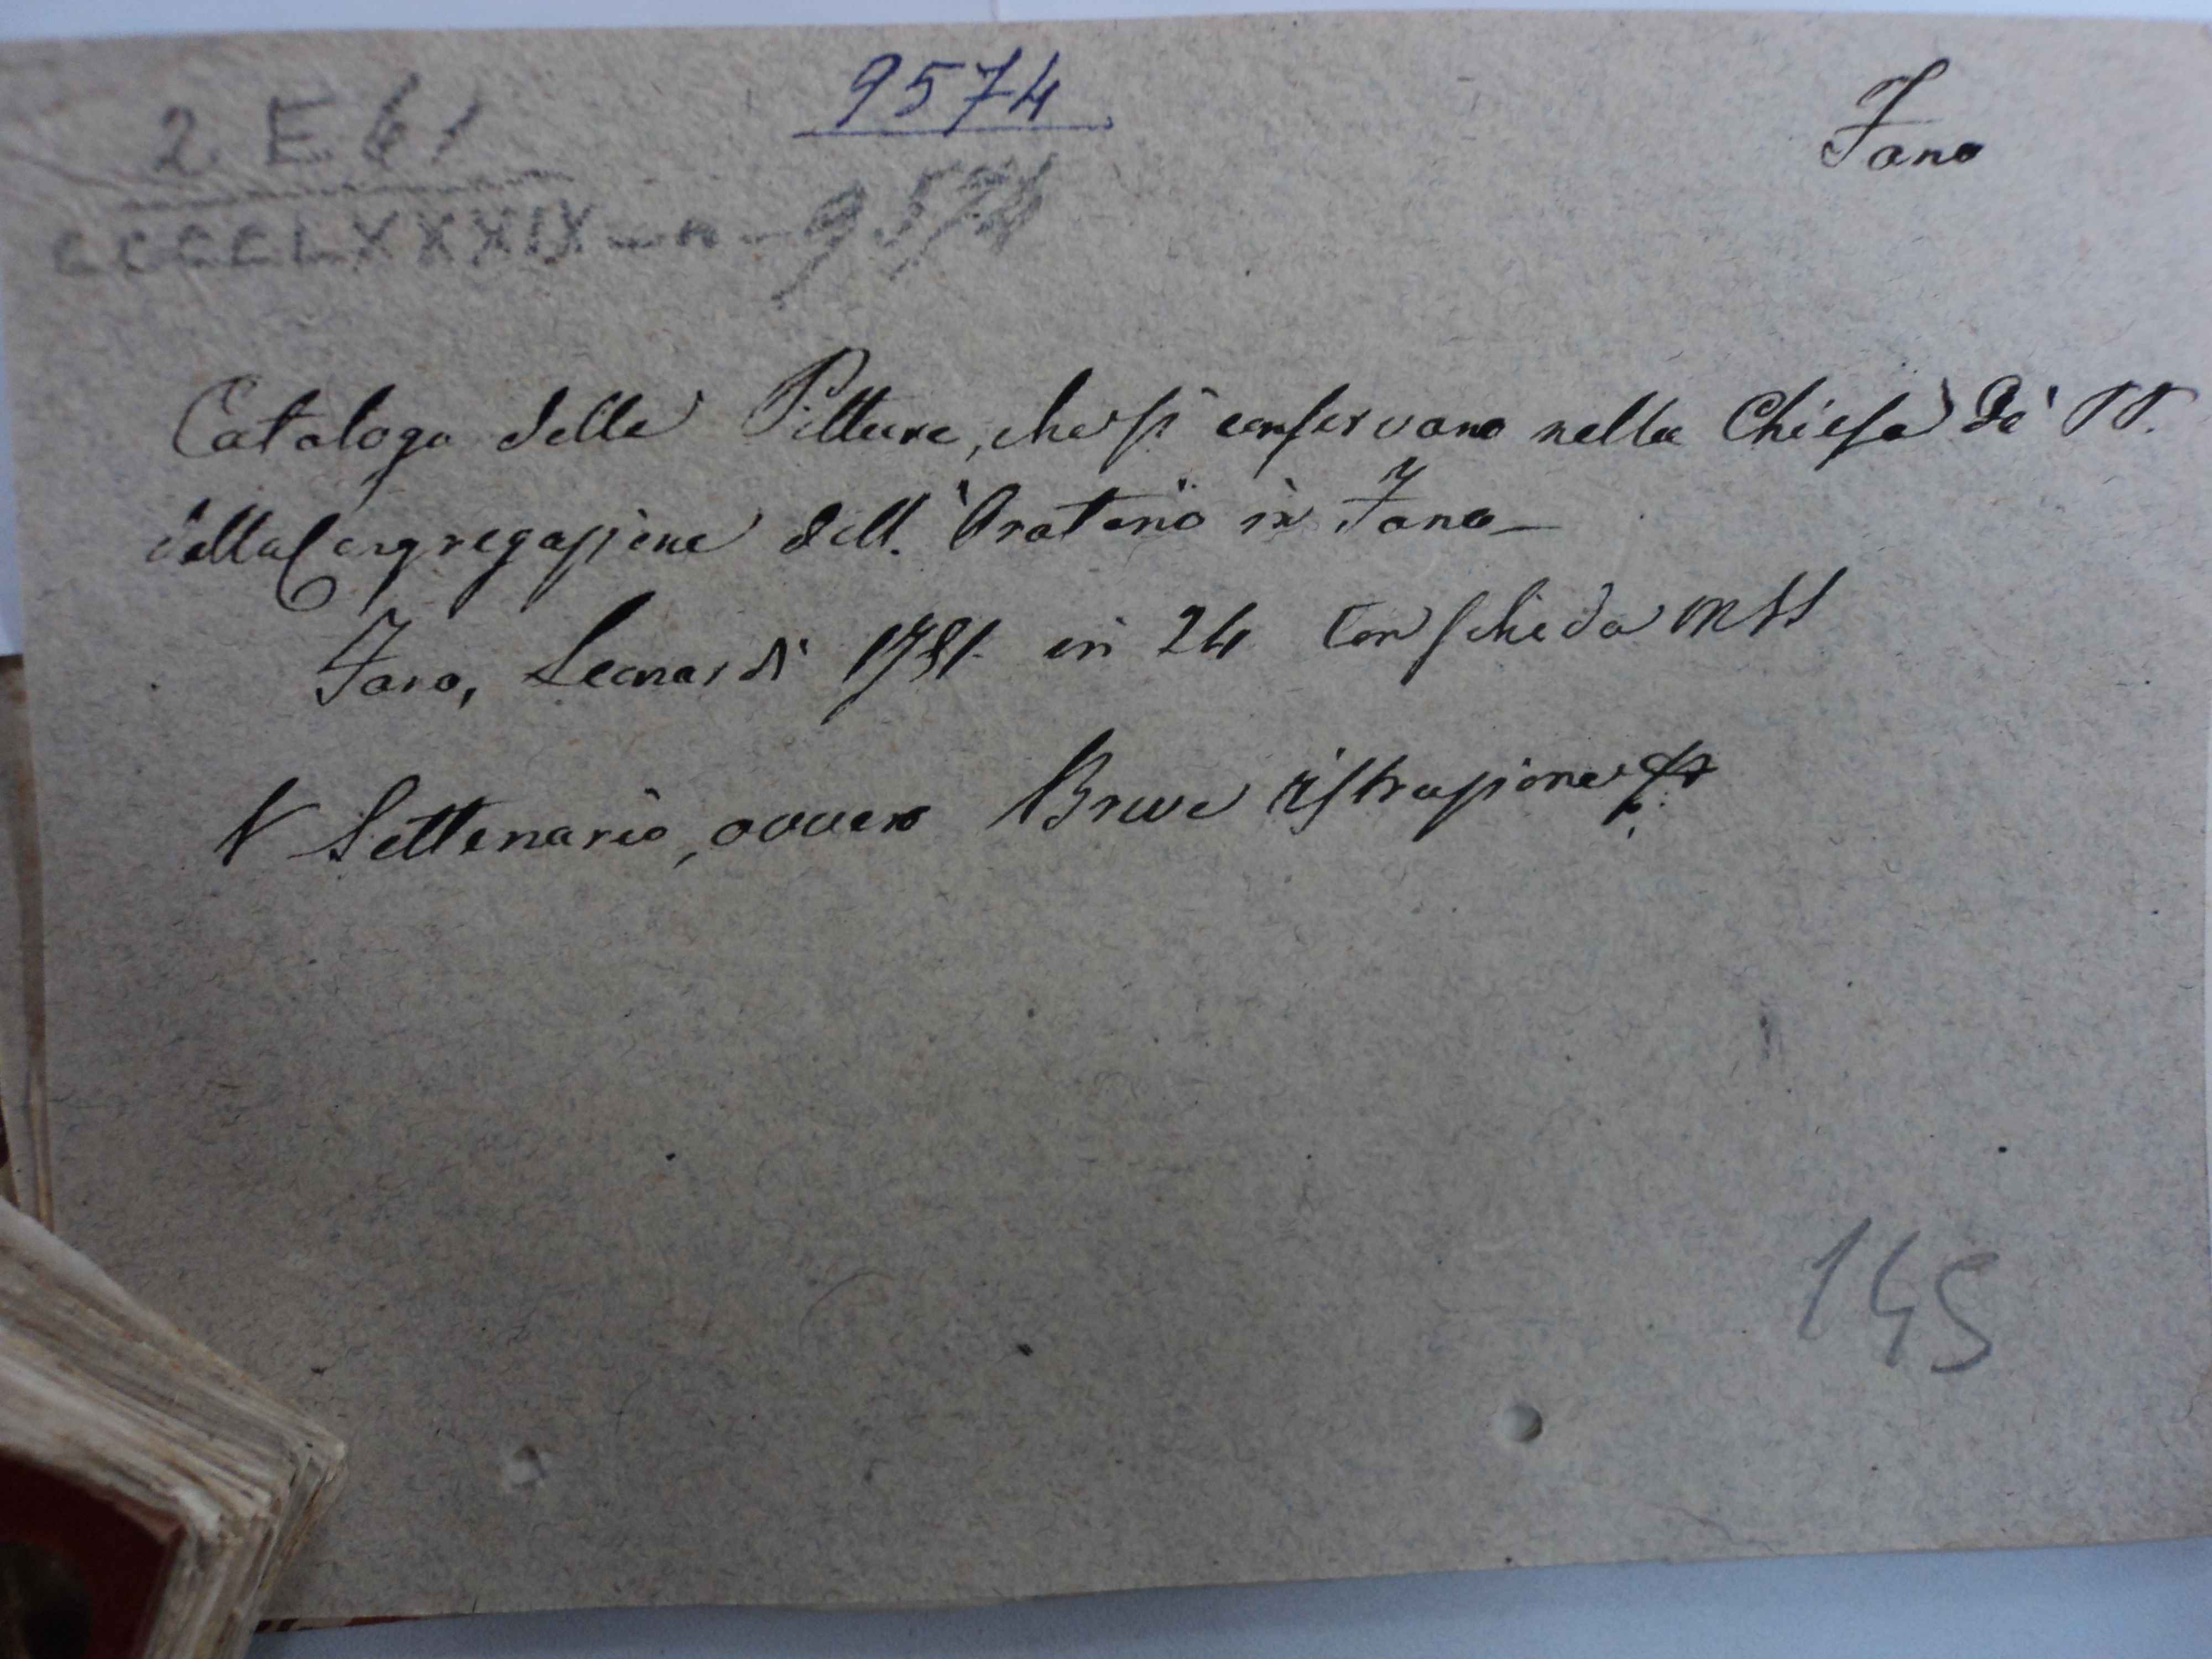 2 E 61
9574
Fano
CCCCLXXXIX - n - 9574
Catalogo delle Pitture, che si conservano nella Chiesa de' PP.
della Congregazione dell' Oratorio in Fano
Fano, Leonardi 1781. in 24 Con scheda MSS
V Settenario, ovvero Breve istruzione
145